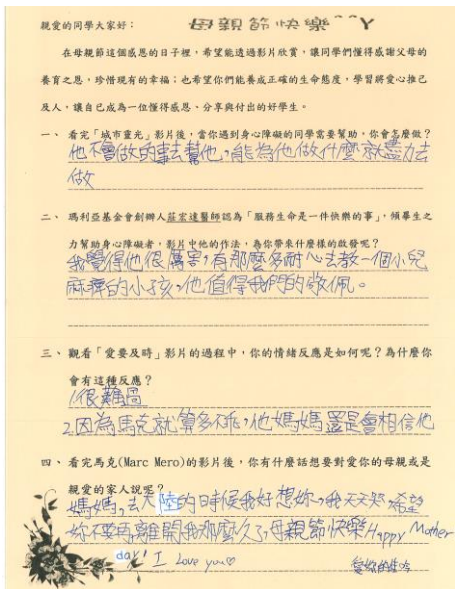 親愛的同學大家好：
母親節快樂^^Y
在母親節這個感恩的日子裡，希望能透過影片欣賞，讓同學們懂得感謝父母的
養育之恩，珍惜現有的幸福；也希望你們能養成正確的生命態度，學習將愛心推己
及人，讓自己成為一位懂得感恩、分享與付出的好學生。
一、看完「城市靈光」影片後，當你遇到身心障礙的同學需要幫助，你會怎麼做？
他不會做的事去幫他，能為他做什麼就盡力去
做
二、瑪利亞基金會創辦人莊宏達醫師認為「服務生命是一件快樂的事」，傾畢生之
力幫助身心障礙者，影片中他的作法，為你帶來什麼樣的啟發呢？
我覺得他很厲害，有那麼多耐心去教一個小兒
麻痺的小孩，他值得我們的敬佩。
三、觀看「愛要及時」影片的過程中，你的情緒反應是如何呢？為什麼你
會有這種反應？
1.很難過
2.因為馬克就算多不乖，他媽媽還是會相信他
四、看完馬克(Marc Mero)的影片後，你有什麼話想要對愛你的母親或是
親愛的家人說呢？
媽媽，去大陸的時候我好想妳，我天天哭，希望
妳不要再離開我那麼久了，母親節快樂Happy Mother
day! I Love you♡
愛妳的